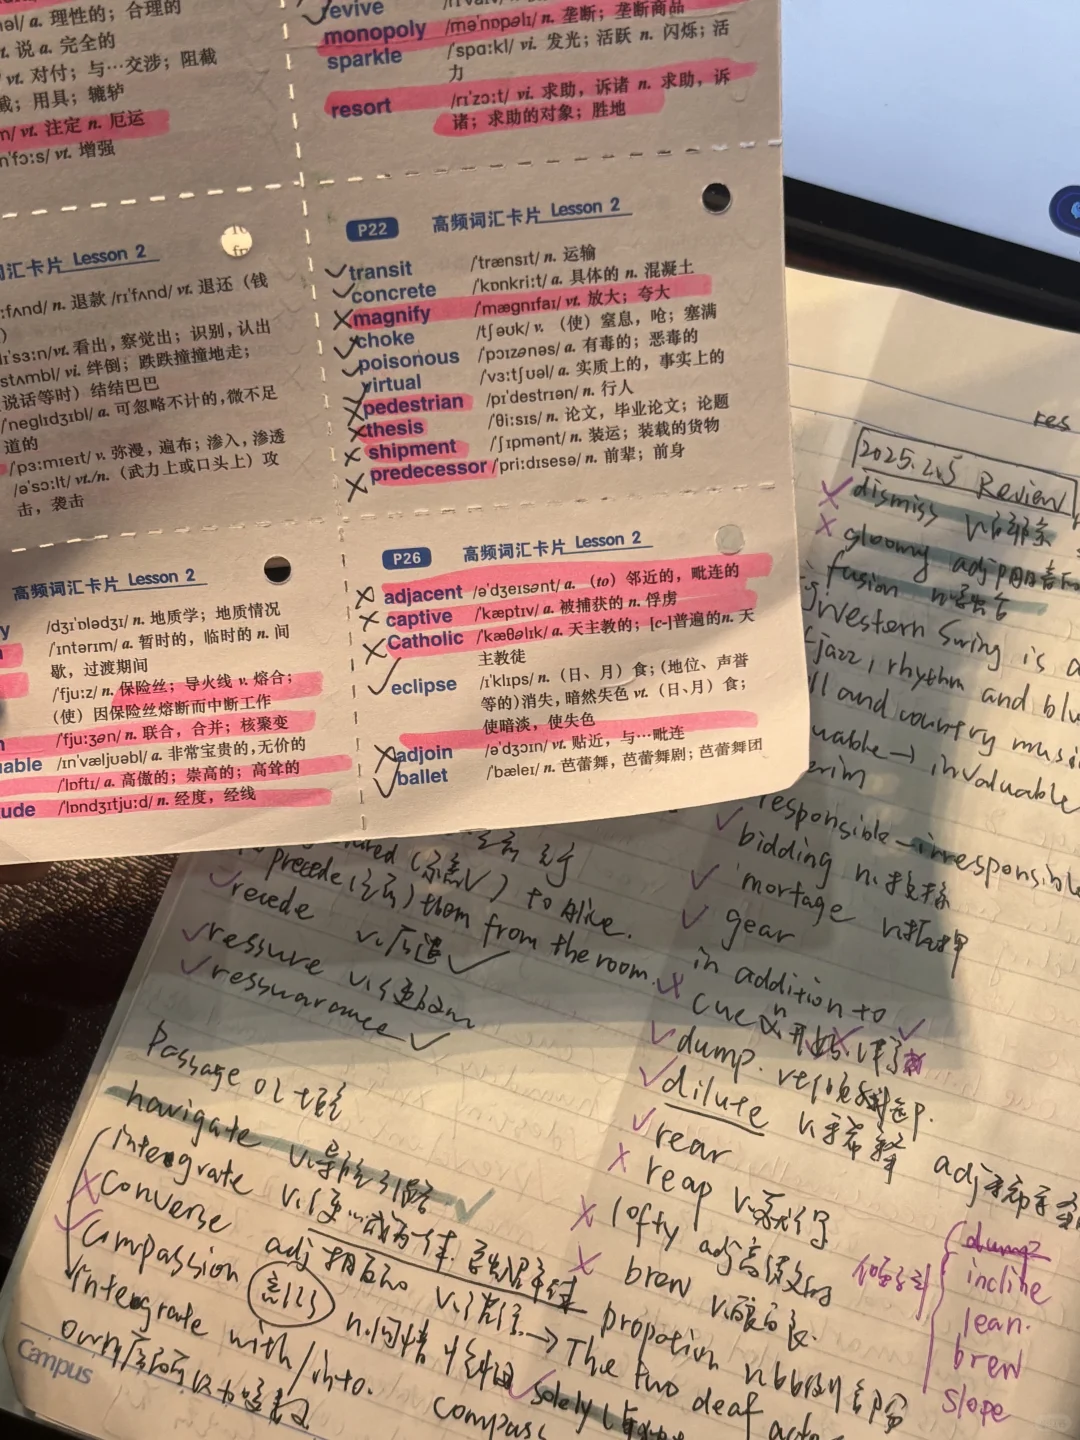 əl/ a. 理性的；合理的
t. 说 a. 完全的
vt. 对付；与…交涉；阻截
截；用具；辘轳
m/ vt. 注定 n. 厄运
n'fɔ:s/ vt. 增强
revive
monopoly /mə'nɒpəlɪ/ n. 垄断；垄断商品
sparkle /'spɑ:kl/ vi. 发光；活跃 n. 闪烁；活
力
resort /rɪ'zɔ:t/ vi. 求助，诉诸 n. 求助，诉
诸；求助的对象；胜地
词汇卡片 Lesson 2
:fʌnd/ n. 退款 /rɪ'fʌnd/ vt. 退还（钱
）
ɪ's3:n/vt. 看出，察觉出；识别，认出
stʌmbl/ vi. 绊倒；跌跌撞撞地走；
说话等时）结结巴巴
/'neglɪdʒɪbl/ a. 可忽略不计的，微不足
道的
/pə:mɪeɪt/ v. 弥漫，遍布；渗入，渗透
/ə'sɔ:lt/ vt./n.（武力上或口头上）攻
击，袭击
P22 高频词汇卡片 Lesson 2
transit /'trænsɪt/ n. 运输
concrete /'kɒnkri:t/ a. 具体的 n. 混凝土
magnify /'mægnɪfaɪ/ vt. 放大；夸大
choke /tʃəʊk/ v.（使）窒息，呛；塞满
poisonous /'pɔɪzənəs/ a. 有毒的；恶毒的
virtual /'vɜ:tʃʊəl/ a. 实质上的，事实上的
pedestrian /pɪ'destrɪən/ n. 行人
thesis /'θi:sɪs/ n. 论文，毕业论文；论题
shipment /'ʃɪpmənt/ n. 装运；装载的货物
predecessor /'pri:dɪsesə/ n. 前辈；前身
高频词汇卡片 Lesson 2
y /dʒɪ'ɒlədʒɪ/ n. 地质学；地质情况
/'ɪntərɪm/ a. 暂时的，临时的 n. 间
歇，过渡期间
/'fju:z/ n. 保险丝；导火线 v. 熔合；
（使）因保险丝熔断而中断工作
n /'fju:ʒən/ n. 联合，合并；核聚变
uable /ɪn'væljuəbl/ a. 非常宝贵的，无价的
/'lɒftɪ/ a. 高傲的；崇高的；高耸的
ude /'lɒndʒɪtju:d/ n. 经度，经线
P26 高频词汇卡片 Lesson 2
adjacent /ə'dʒeɪsənt/ a.（to）邻近的，毗连的
captive /'kæptɪv/ a. 被捕获的 n. 俘虏
Catholic /'kæθəlɪk/ a. 天主教的；[c-]普遍的 n. 天
主教徒
eclipse /ɪ'klɪps/ n.（日、月）食；（地位、声誉
等的）消失，暗然失色 vt.（日、月）食；
使暗淡，使失色
adjoin /ə'dʒɔɪn/ vt. 贴近，与…毗连
ballet /'bæleɪ/ n. 芭蕾舞，芭蕾舞剧；芭蕾舞团
res
2025.2.5 Review
dismiss v.
gloomy adj
fusion n
Western Swing is a
jazz, rhythm and blu
ll and country musi
uable → invaluable
rim
responsible — irresponsible
bidding n. 投标
mortage n 抵押
gear
in addition to
cue n
dump. vt 倾
dilute v. 稀释 adj 稀
rear
reap v. 获得
lofty adj 高
brew v. 酿
倾斜
dump
incline
lean.
brew
slope
propotion n 比例 部分
The two deaf
solely
precede (
) them from the room.
) to Alice.
recede v. 后退
ressure v.
ressurarance
Passage 01
navigate v. 导航
integrate v. 使…成为一体
converse adj 相反的
compassion n. 同情
integrate with/into.
compass
Campus